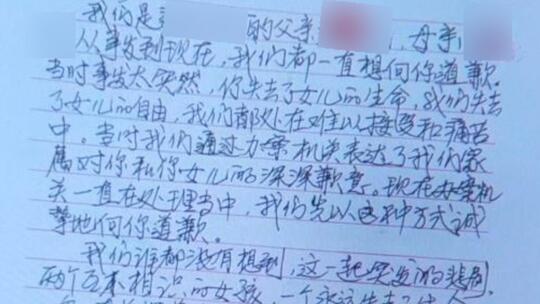 我们是 的父亲 ,母亲
从事发到现在,我们都一直想向你道歉。
当时事发太突然,你失去了女儿的生命,我们失去
了女儿的自由,我们都处在难以接受和痛苦
中。当时我们通过办案机关表达了我们家
属对你和你女儿的深深歉意。现在办案机
关一直在处理当中,我们先以这种方式诚
挚地向你道歉。
我们谁都没有想到,这一起突发的悲剧,
两个互不相识的女孩,一个永远失去